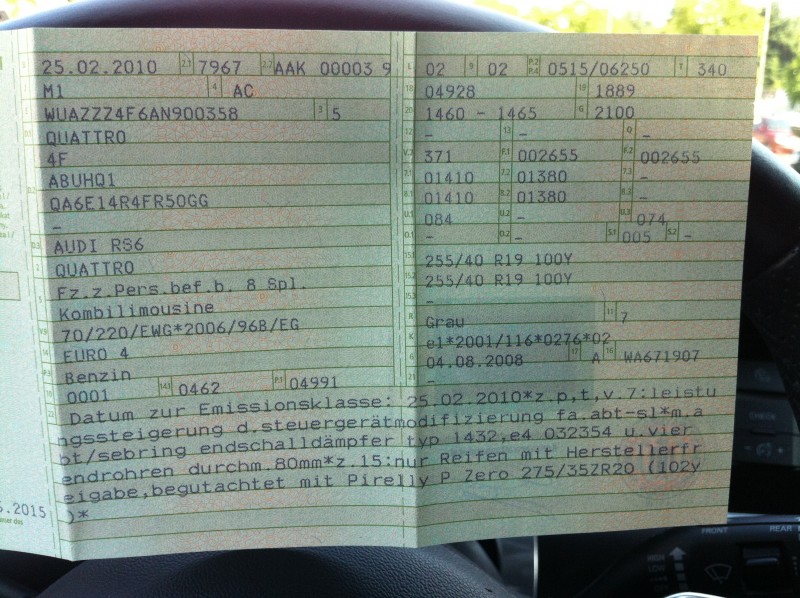 25.02.2010 2.1 7967 2.2 AAK 00003 9
M1 4 AC
WUAZZZ4F6AN900358 3 5
QUATTRO
4F
ABUHQ1
QA6E14R4FR50GG
-
D.3 AUDI RS6
2 QUATTRO
5 Fz.z.Pers.bef.b. 8 Spl.
Kombilimousine
V.9 70/220/EWG*2006/96B/EG
14 EURO 4
P.3 Benzin
10 0001 14.1 0462 P.1 04991
L 02 9 02 P.2 P.4 0515/06250 T 340
18 04928 19 1889
20 1460 - 1465 G 2100
12 - 13 - Q -
V.7 371 F.1 002655 F.2 002655
7.1 01410 7.2 01380 7.3 -
8.1 01410 8.2 01380 8.3 -
U.1 084 U.2 - U.3 074
O.1 - O.2 - S.1 005 S.2 -
15.1 255/40 R19 100Y
15.2 255/40 R19 100Y
15.3 -
R Grau 11 7
K e1*2001/116*0276*02
6 04.08.2008 17 A 16 WA671907
21 -
22 Datum zur Emissionsklasse: 25.02.2010*z.p,t,v.7:leistu
ngssteigerung d,steuergerätmodifizierung fa.abt-sl*m.a
bt/sebring endschalldämpfer typ 1432,e4 032354 u.vier
endrohren durchm.80mm*z.15:nur Reifen mit Herstellerfr
eigabe,begutachtet mit Pirelly P Zero 275/35ZR20 (102y
)*
.2015
FRONT REAR
CHECK